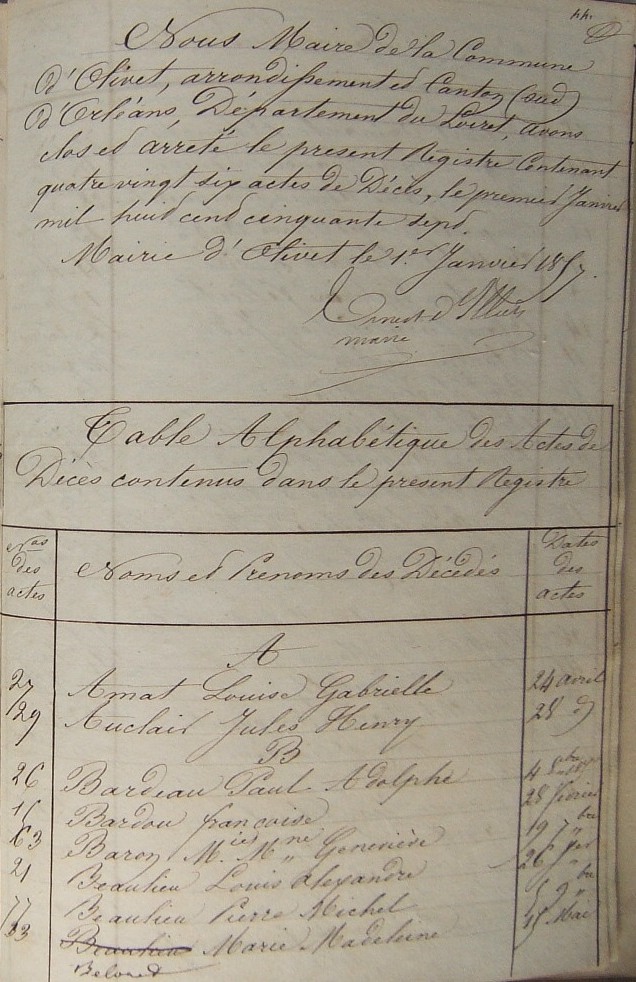 44.
Nous Maire de la Commune
d'Olivet, arrondissement et Canton (sud)
d'Orléans, Département du Loiret, avons
clos et arrêté le present Registre Contenant
quatre vingt six actes de Décès, le premier Janvier
mil huit cent cinquante sept.
Mairie d'Olivet le 1er Janvier 1857.
Ernest d'Illiers
maire
Table Alphabétique des Actes de
Décès contenus dans le present Registre
Nos des actes
Noms et Prenoms des Décédés
Dates des actes
A
27 Amat Louise Gabrielle 24 avril
29 Auclair Jules Henry 28 d
B
26 Bardeau Paul Adolphe
Bardou françoise 28 février
63 Baron Mie Mne Geneviève 19 7bre
21 Beaulieu Louis alexandre
77 Beaulieu Pierre Michel 9bre
33 Beaulieu Marie Madeleine 15 Mai
Beloued